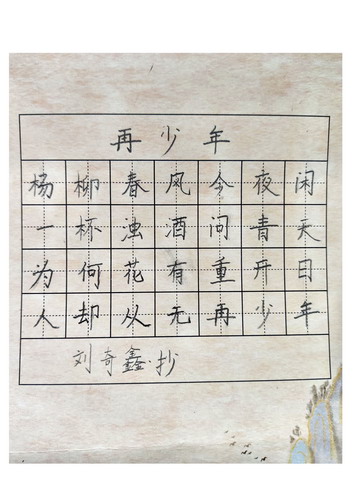 再少年
杨柳春风今夜闲
一杯浊酒问青天
为何花有重开日
人却从无再少年
刘奇鑫·抄